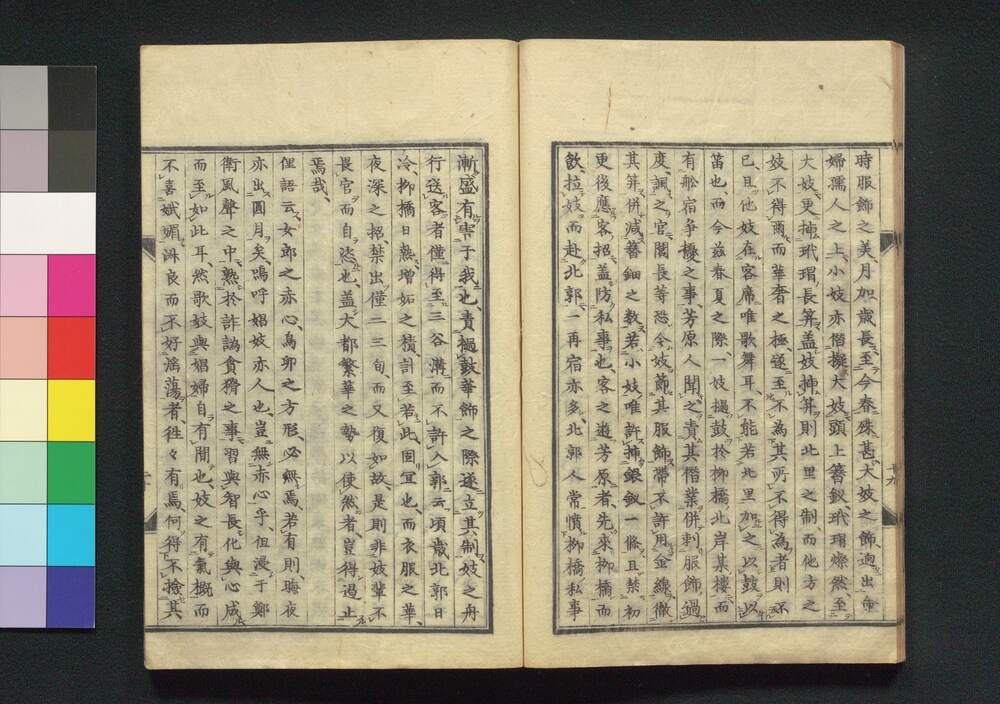 時服飾之美、月加歲長、至今春殊甚、大妓之飾迥出命
婦孺人之上、小妓亦僭擬大妓、頭上簪釵玳瑁燦然、至
大妓更揷玳瑁長笄、盖妓揷笄則北里之制、而他方之
妓不得爾、而華奢之極、遂至不為其所不得為者則不
已、且他妓在客席唯歌舞耳、不能若北里加之以鼓以
笛也、而今茲春夏之際、一妓撾鼓於柳橋北岸某樓、而
有舩宿爭擾之事、芳原人聞之、責其僭業併刺服飾過
度、諷之官、閣長等恐、令妓節其服飾、帶不許用金線、徹
其笄併減簪鈿之数、若小妓唯許揷銀釵一條、且禁初
更後應客招、盖防私事也、客之遊芳原者、先來柳橋而
飲、拉妓而赴北郭、一再宿亦多、北郭人常憤柳橋私事
漸盛有害于我也、責撾鼓華飾之際、遂立其制、妓之舟
行送客者僅得至三谷溝、而不許入郭云、頃歲北郭日
冷、柳橋日熱、增妬之積、計至若此、固宜也、而衣服之華、
夜深之招、禁出僅二三旬、而又復如故、是則非妓輩不
畏官而自恣也、盖大都繁華之勢以使然者、豈得遏止
焉哉、
俚語云、女郎之赤心、鳥卵之方形、必無焉、若有則晦夜
亦出圓月矣、嗚呼娼妓亦人也、豈無赤心乎、但浸于鄭
衛風聲之中、熟於詐譎貪猾之事、習與智長、化與心成
而至如此耳、然歌妓與娼婦自有間也、妓之有氣概而
不喜嫵媚、淋良而不好滛蕩者、徃々有焉、何得不捨其